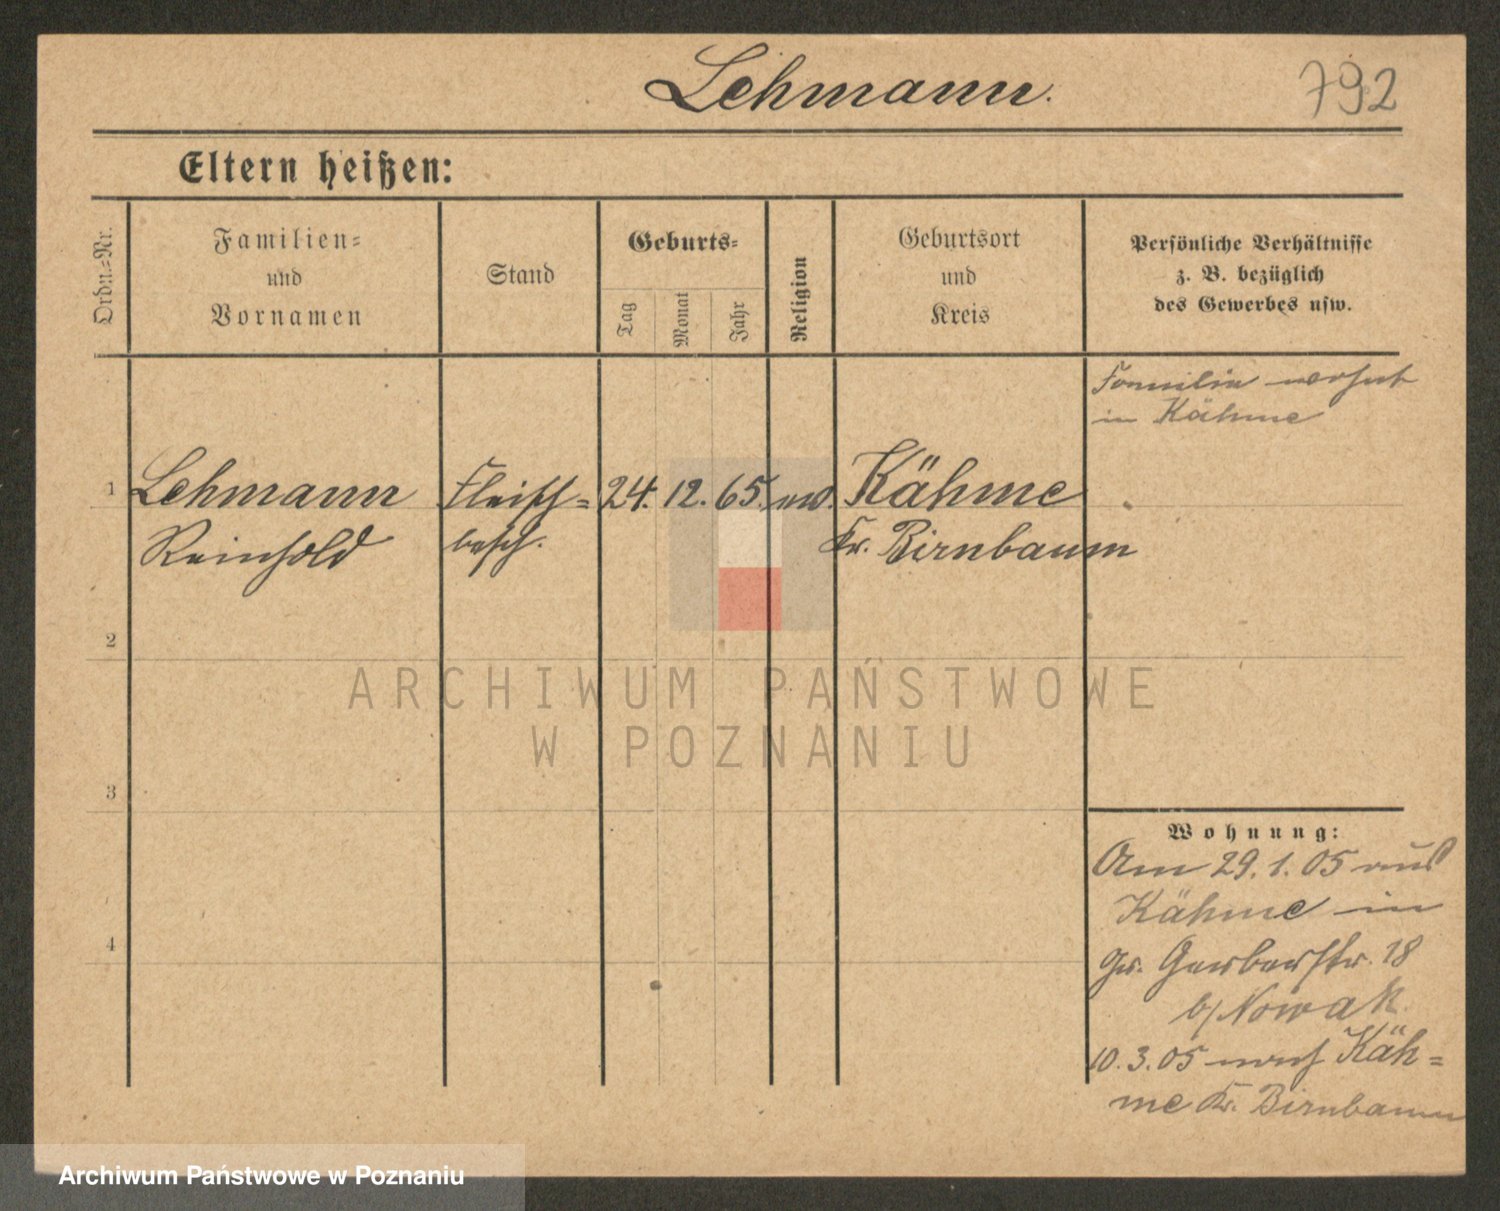 Lehmann.
792
Eltern heißen:
Ordn.-Nr.
Familien-
und
Vornamen
Stand
Geburts-
Tag
Monat
Jahr
Religion
Geburtsort
und
Kreis
Persönliche Verhältnisse
z. B. bezüglich
des Gewerbes usw.
Familie wohnt
in Kähme
1
Lehmann
Reinhold
Fleisch-
besch.
24. 12. 65.
Kähme
Kr. Birnbaum
2
3
4
Wohnung:
Am 29.1.05 aus
Kähme in
Gr. Gerberstr. 18
b/ Nowak
10.3.05 nach Käh-
me Kr. Birnbaum
ARCHIWUM PAŃSTWOWE
W POZNANIU
Archiwum Państwowe w Poznaniu